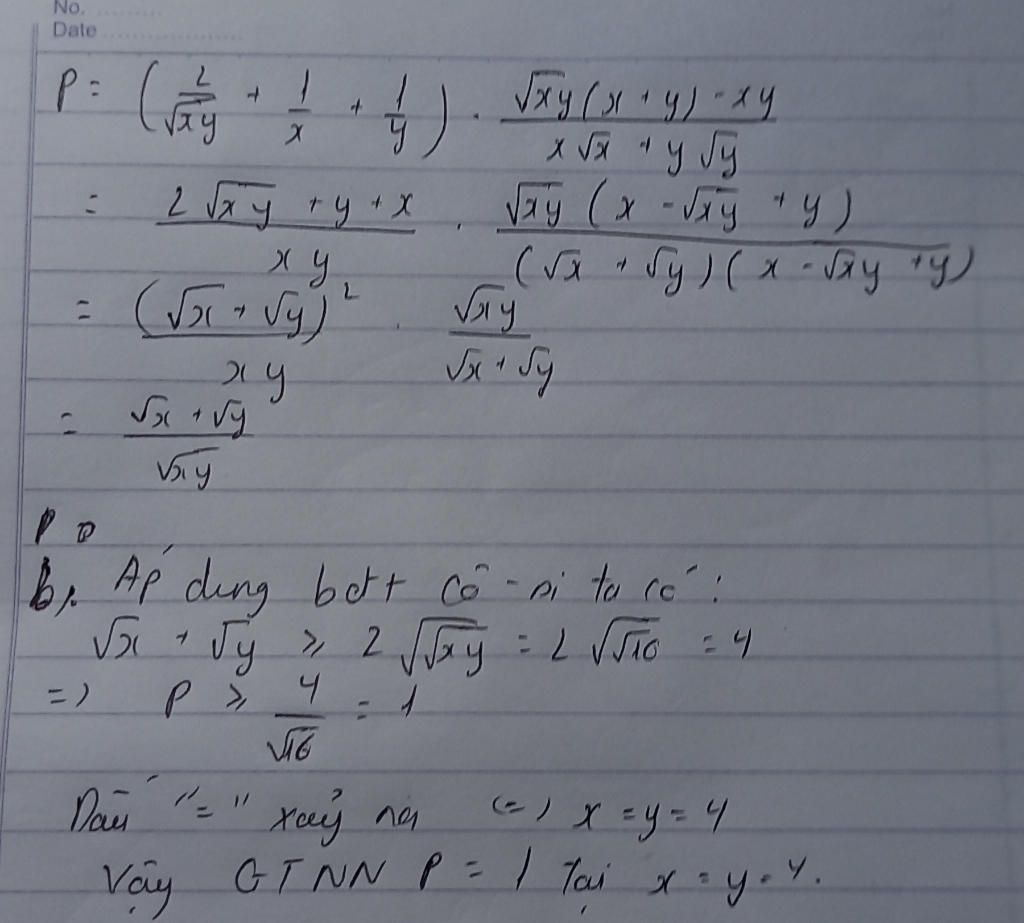 No. ............
Date ........................
P = ( 2/√xy + 1/x + 1/y ) . (√xy (x + y) - xy)/(x√x + y√y)
= (2√xy + y + x)/(xy) . (√xy (x - √xy + y))/((√x + √y)(x - √xy + y))
= (√x + √y)²/(xy) . √xy/(√x + √y)
= (√x + √y)/√xy
b, Áp dụng bđt Cô-si ta có :
√x + √y ≥ 2√√xy = 2√√16 = 4
=> P ≥ 4/√16 = 1
Dấu "=" xảy ra <=> x = y = 4
Vậy GTNN P = 1 tại x = y = 4.